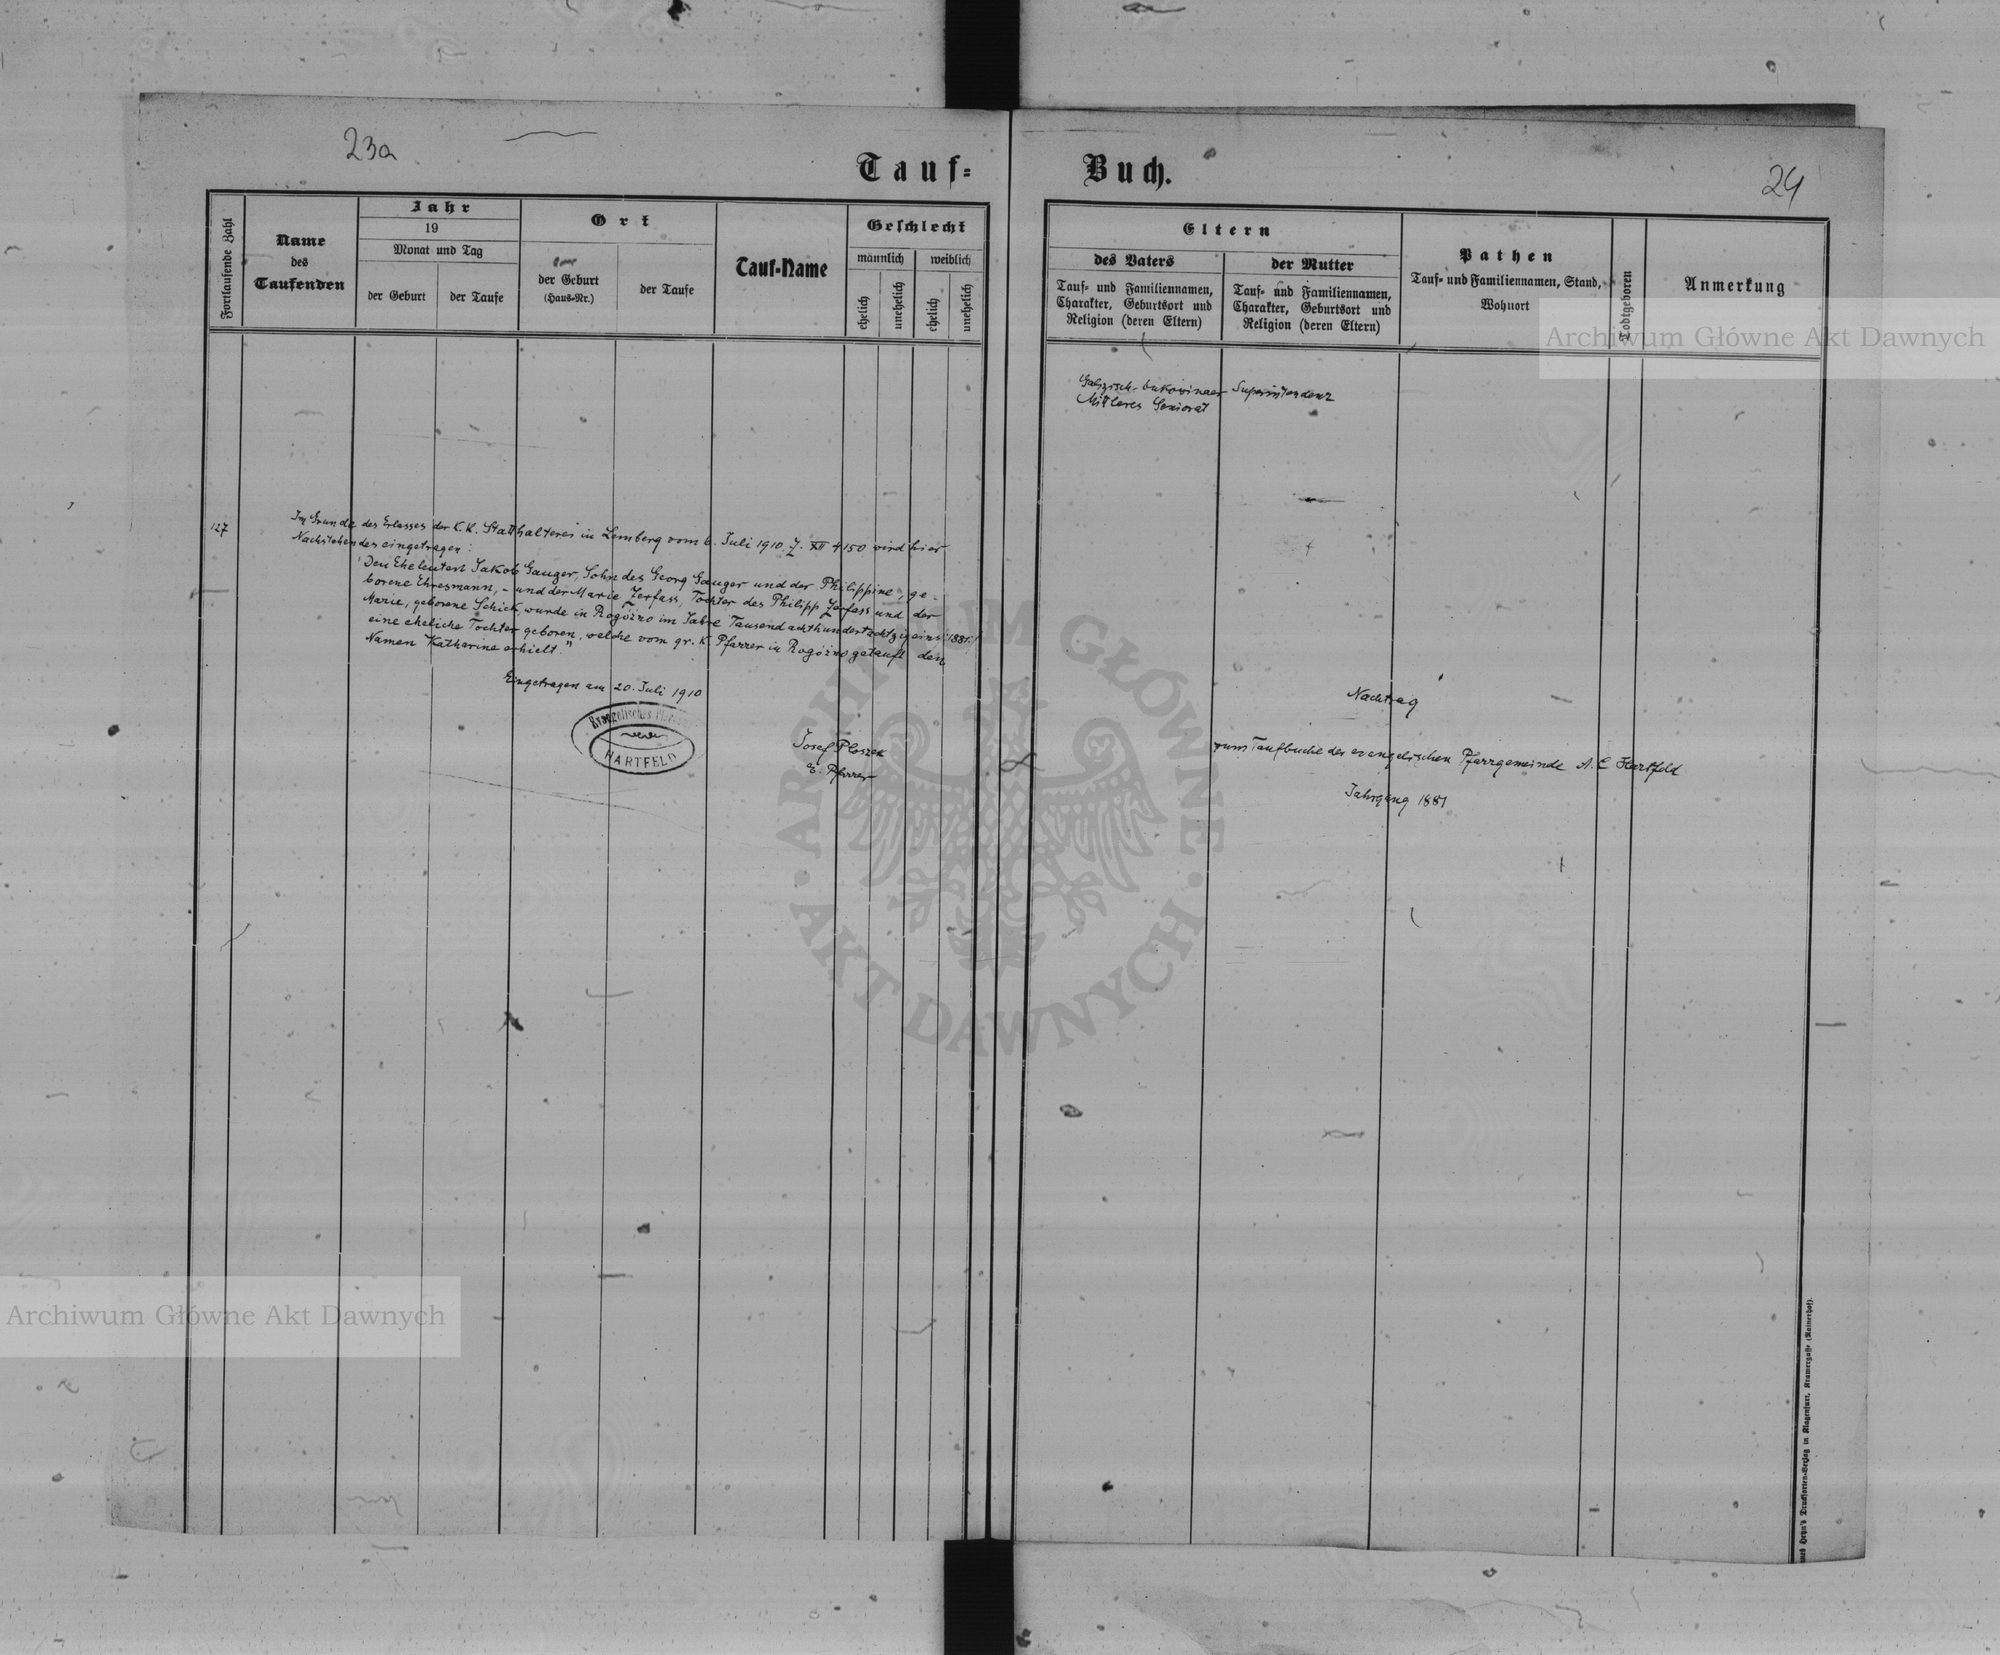 23a
Tauf=
Fortlaufende Zahl
Name
des
Taufenden
Jahr
19
Monat und Tag
der Geburt
der Taufe
Ort
der Geburt
(Haus-Nr.)
der Taufe
Tauf-Name
Geschlecht
männlich
weiblich
ehelich
unehelich
ehelich
unehelich
127
Im Grunde des Erlasses der K.K. Statthalterei in Lemberg vom 6. Juli 1910, Z. XII 4150 wird hier
Nachstehendes eingetragen:
"Den Eheleuten Jakob Gauger, Sohn des Georg Gauger und der Philippine, ge-
borene Ehresmann, - und der Marie Zerfass, Tochter des Philipp Zerfass und der
Marie, geborene Schick, wurde in Rogóżno im Jahre Tausendachthundertachtzigeins /:1881:/
eine eheliche Tochter geboren, welche vom gr. K. Pfarrer in Rogóżno getauft den
Namen Katharine erhielt."
Eingetragen am 20. Juli 1910
Evangelisches
HARTFELD
Josef Ploszek
e. Pfarrer
Buch.
24
Eltern
des Vaters
Tauf- und Familiennamen,
Charakter, Geburtsort und
Religion (deren Eltern)
der Mutter
Tauf- und Familiennamen,
Charakter, Geburtsort und
Religion (deren Eltern)
Pathen
Tauf- und Familiennamen, Stand,
Wohnort
Todtgeboren
Anmerkung
Galizisch-bukowinaer Superintendenz
Mittleres Seniorat
Nachtrag
zum Taufbuche der evangelischen Pfarrgemeinde A. C. Hartfeld
Jahrgang 1881
Heyn's Drucksorten-Verlag in Klagenfurt, Kramergasse (Rainerhof).
Archiwum Główne Akt Dawnych
Archiwum Główne Akt Dawnych
ARCHIWUM GŁÓWNE · AKT DAWNYCH ·